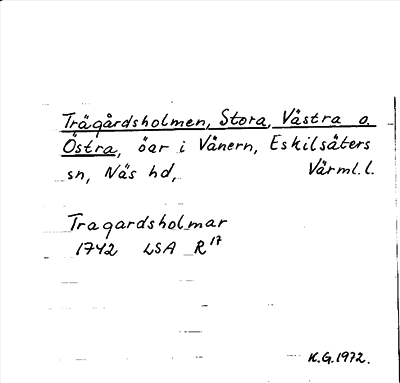 Trägårdsholmen, Stora, Västra o.
Östra, öar i Vänern, Eskilsäters
sn, Näs hd, Värml. l.
Tragardsholmar
1742 LSA R17
K.G. 1972.